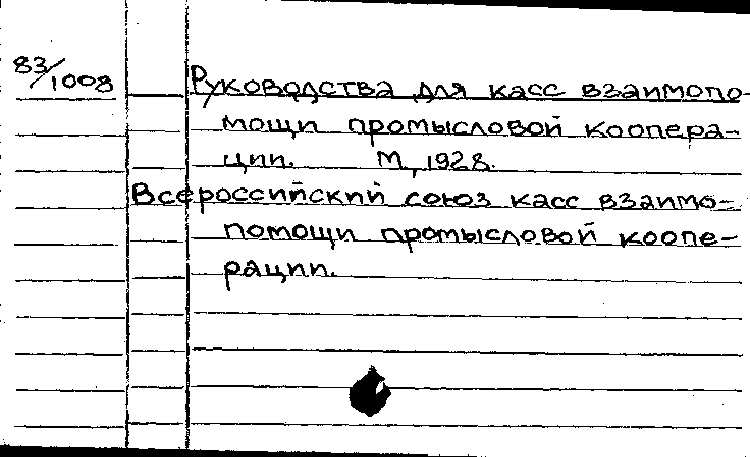 83/1008
Руководства для касс взаимопо-
мощи промысловой коопера-
ции. М, 1928.
Всероссийский союз касс взаимо-
помощи промысловой коопе-
рации.